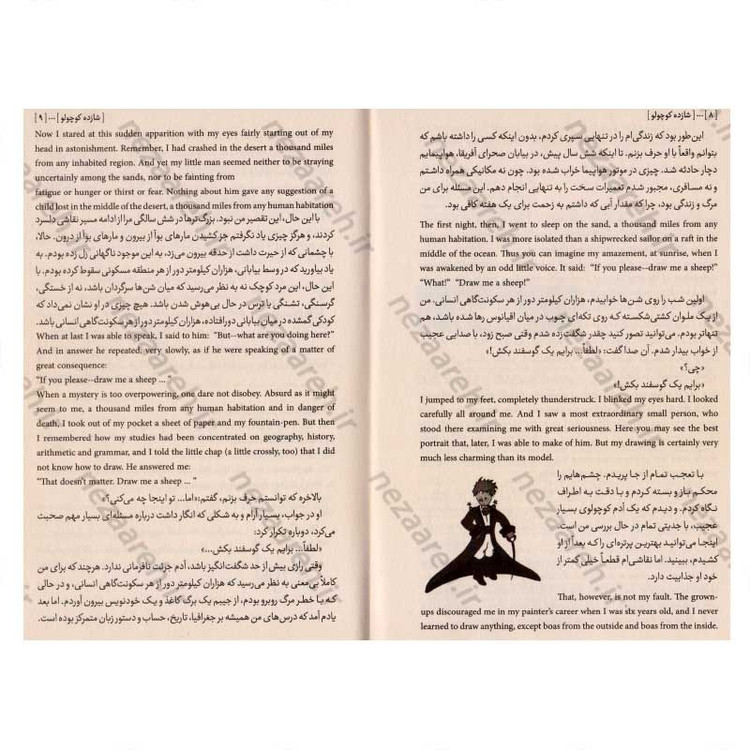 [ ۸ ] ... [ شازده کوچولو ]
این‌طور بود که زندگی‌ام را در تنهایی سپری کردم، بدون اینکه کسی را داشته باشم که
بتوانم واقعاً با او حرف بزنم. تا اینکه شش سال پیش، در بیابان صحرای آفریقا، هواپیمایم
دچار حادثه شد. چیزی در موتور هواپیما خراب شده بود. چون نه مکانیکی همراه داشتم
و نه مسافری، مجبور شدم تعمیرات سخت را به تنهایی انجام دهم. این مسئله برای من
مرگ و زندگی بود، چرا که مقدار آبی که داشتم به زحمت برای یک هفته کافی بود.
The first night, then, I went to sleep on the sand, a thousand miles from any
human habitation. I was more isolated than a shipwrecked sailor on a raft in the
middle of the ocean. Thus you can imagine my amazement, at sunrise, when I
was awakened by an odd little voice. It said: "If you please--draw me a sheep!"
"What!" "Draw me a sheep!"
اولین شب را روی شن‌ها خوابیدم، هزاران کیلومتر دور از هر سکونت‌گاهی انسانی. من
از یک ملوان کشتی‌شکسته که روی تکه‌ای چوب در میان اقیانوس رها شده باشد، هم
تنهاتر بودم. می‌توانید تصور کنید چقدر شگفت‌زده شدم وقتی صبح زود، با صدایی عجیب
از خواب بیدار شدم. آن صدا گفت: «لطفاً... برایم یک گوسفند بکش!»
«چی؟»
«برایم یک گوسفند بکش!»
I jumped to my feet, completely thunderstruck. I blinked my eyes hard. I looked
carefully all around me. And I saw a most extraordinary small person, who
stood there examining me with great seriousness. Here you may see the best
portrait that, later, I was able to make of him. But my drawing is certainly very
much less charming than its model.
با تعجب تمام از جا پریدم. چشم‌هایم را
محکم باز و بسته کردم و با دقت به اطراف
نگاه کردم. و دیدم که یک آدم کوچولوی بسیار
عجیب، با جدیتی تمام در حال بررسی من است.
اینجا می‌توانید بهترین پرتره‌ای را که بعد از او
کشیدم، ببینید. اما نقاشی‌ام قطعاً خیلی کمتر از
خود او جذابیت دارد.
That, however, is not my fault. The grown-
ups discouraged me in my painter's career when I was six years old, and I never
learned to draw anything, except boas from the outside and boas from the inside.
[ شازده کوچولو ] ... [ ۹ ]
Now I stared at this sudden apparition with my eyes fairly starting out of my
head in astonishment. Remember, I had crashed in the desert a thousand miles
from any inhabited region. And yet my little man seemed neither to be straying
uncertainly among the sands, nor to be fainting from
fatigue or hunger or thirst or fear. Nothing about him gave any suggestion of a
child lost in the middle of the desert, a thousand miles from any human habitation
با این حال، این تقصیر من نبود. بزرگ‌ترها در شش سالگی مرا از ادامه مسیر نقاشی دلسرد
کردند، و هرگز چیزی یاد نگرفتم جز کشیدن مارهای بوآ از بیرون و مارهای بوآ از درون. حالا،
با چشمانی که از حیرت داشت از حدقه بیرون می‌زد، به این موجود ناگهانی زل زده بودم. به
یاد بیاورید که در وسط بیابانی، هزاران کیلومتر دور از هر منطقه مسکونی سقوط کرده بودم. با
این حال، این مرد کوچک نه به نظر می‌رسید که میان شن‌ها سرگردان باشد، نه از خستگی،
گرسنگی، تشنگی یا ترس در حال بی‌هوش شدن باشد. هیچ چیزی در او نشان نمی‌داد که
کودکی گمشده در میان بیابانی دورافتاده، هزاران کیلومتر دور از هر سکونت‌گاهی انسانی باشد.
When at last I was able to speak, I said to him: "But--what are you doing here?"
And in answer he repeated, very slowly, as if he were speaking of a matter of
great consequence:
"If you please--draw me a sheep ... "
When a mystery is too overpowering, one dare not disobey. Absurd as it might
seem to me, a thousand miles from any human habitation and in danger of
death, I took out of my pocket a sheet of paper and my fountain-pen. But then
I remembered how my studies had been concentrated on geography, history,
arithmetic and grammar, and I told the little chap (a little crossly, too) that I did
not know how to draw. He answered me:
"That doesn't matter. Draw me a sheep ... "
بالاخره که توانستم حرف بزنم، گفتم: «اما... تو اینجا چه می‌کنی؟»
او در جواب، بسیار آرام و به شکلی که انگار داشت درباره مسئله‌ای بسیار مهم صحبت
می‌کرد، دوباره تکرار کرد:
«لطفاً... برایم یک گوسفند بکش...»
وقتی رازی بیش از حد شگفت‌انگیز باشد، آدم جرئت نافرمانی ندارد. هرچند که برای من
کاملاً بی‌معنی به نظر می‌رسید که هزاران کیلومتر دور از هر سکونت‌گاهی انسانی، و در حالی
که با خطر مرگ روبرو بودم، از جیبم یک برگ کاغذ و یک خودنویس بیرون آوردم. اما بعد
یادم آمد که درس‌های من همیشه بر جغرافیا، تاریخ، حساب و دستور زبان متمرکز بوده است.
nezaareh.ir